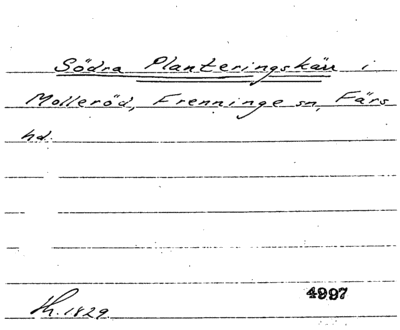 Södra Planteringskärr i
Molleröd, Frenninge sn, Färs
hd.
Th. 1829 4997